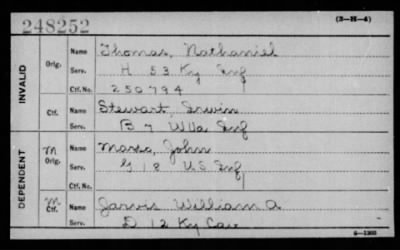 248252
(3-H-4)
INVALID
Orig.
Name Thomas, Nathaniel
Serv. H 53 Ky Inf
Ctf. No. 250794
Ctf.
Name Stewart, Irwin
Serv. B 7 W Va Inf
DEPENDENT
M
Orig.
Name John
Serv. G 18 U S Inf
Ctf. No.
M
Ctf.
Name Jarvis William A
Serv. D 12 Ky Cav